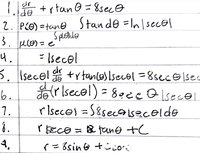 1. dr/dθ + r tanθ = 8secθ
2. P(θ) = tanθ ∫tandθ = ln|secθ|
3. μ(θ) = e^∫p(θ)dθ
4. = |secθ|
5. |secθ| dr/dθ + r tan(θ)|secθ| = 8secθ|secθ|
6. d/dθ (r|secθ|) = 8secθ|secθ|
7. r|secθ| = ∫8secθ|secθ|dθ
8. r|secθ = 8 tanθ + C
9. r = 8sinθ +